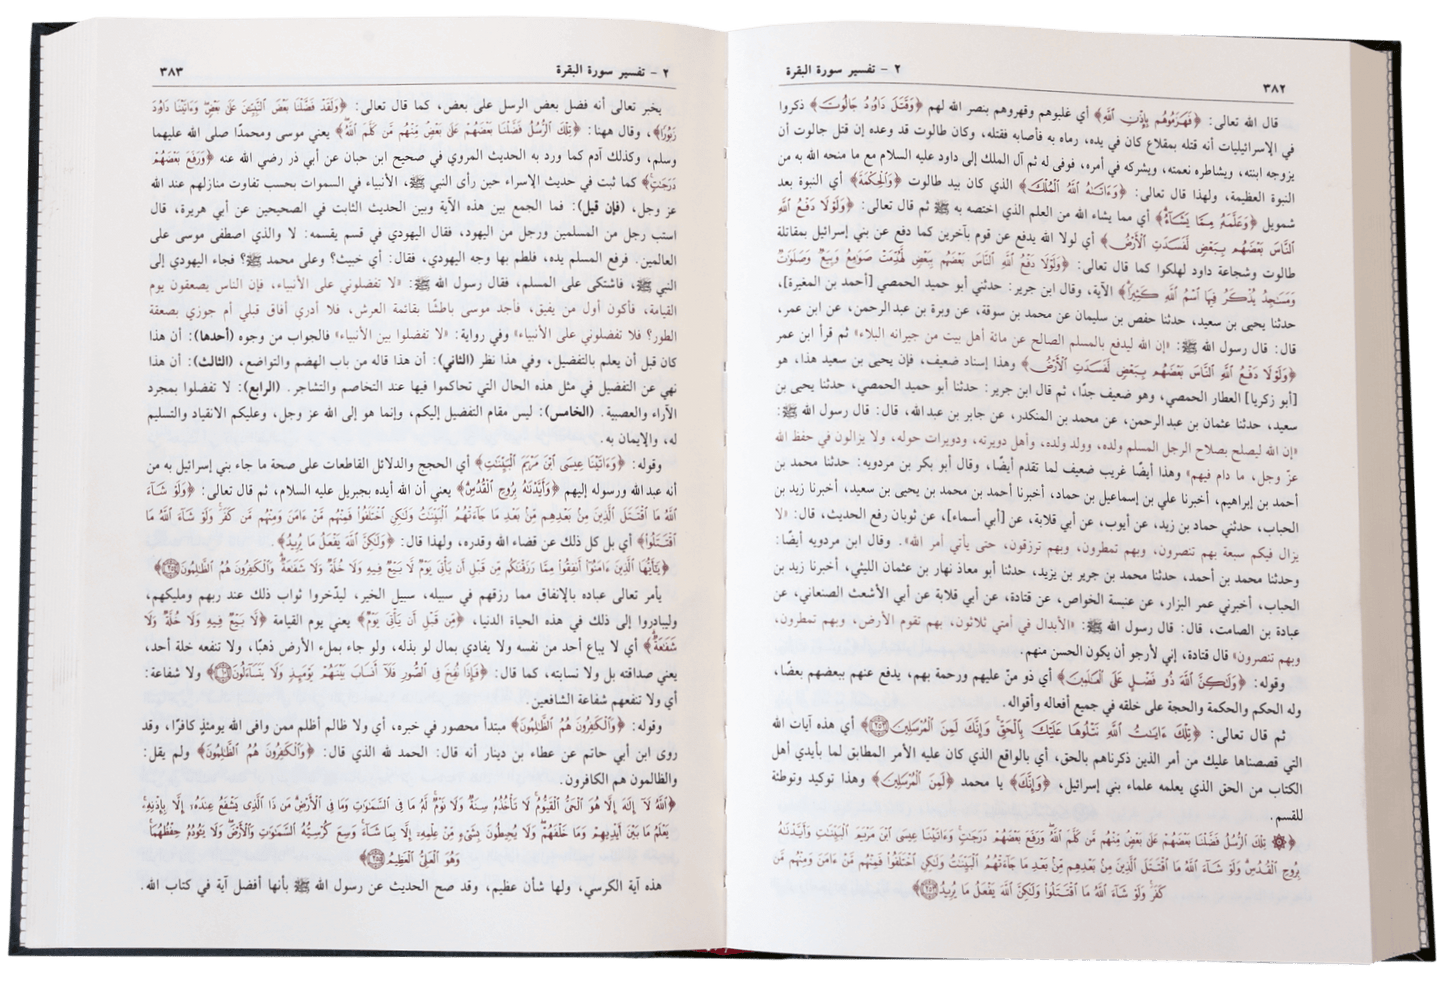 ٢ - تفسير سورة البقرة
٣٨٢
قال الله تعالى: ﴿فَهَزَمُوهُم بِإِذْنِ اللَّهِ﴾ أي غلبوهم وقهروهم بنصر الله لهم ﴿وَقَتَلَ دَاوُدُ جَالُوتَ﴾ ذكروا
في الإسرائيليات أنه قتله بمقلاع كان في يده، رماه به فأصابه فقتله، وكان طالوت قد وعده إن قتل جالوت أن
يزوجه ابنته، ويشاطره نعمته، ويشركه في أمره، فوفى له ثم آل الملك إلى داود عليه السلام مع ما منحه الله به من
النبوة العظيمة، ولهذا قال تعالى: ﴿وَءَاتَىٰهُ اللَّهُ الْمُلْكَ﴾ الذي كان بيد طالوت ﴿وَالْحِكْمَةَ﴾ أي النبوة بعد
شمويل ﴿وَعَلَّمَهُ مِمَّا يَشَآءُ﴾ أي مما يشاء الله من العلم الذي اختصه به ﷺ ثم قال تعالى: ﴿وَلَوْلَا دَفْعُ اللَّهِ
النَّاسَ بَعْضَهُم بِبَعْضٍ لَّفَسَدَتِ الْأَرْضُ﴾ أي لولا الله يدفع عن قوم بآخرين كما دفع عن بني إسرائيل بمقاتلة
طالوت وشجاعة داود لهلكوا كما قال تعالى: ﴿وَلَوْلَا دَفْعُ اللَّهِ النَّاسَ بَعْضَهُم بِبَعْضٍ لَّهُدِّمَتْ صَوَامِعُ وَبِيَعٌ وَصَلَوَاتٌ
وَمَسَاجِدُ يُذْكَرُ فِيهَا اسْمُ اللَّهِ كَثِيرًا﴾ الآية، وقال ابن جرير: حدثني أبو حميد الحمصي [أحمد بن المغيرة]،
حدثنا يحيى بن سعيد، حدثنا حفص بن سليمان عن محمد بن سوقة، عن وبرة بن عبد الرحمن، عن ابن عمر،
قال: قال رسول الله ﷺ: «إن الله ليدفع بالمسلم الصالح عن مائة أهل بيت من جيرانه البلاء» ثم قرأ ابن عمر
﴿وَلَوْلَا دَفْعُ اللَّهِ النَّاسَ بَعْضَهُم بِبَعْضٍ لَّفَسَدَتِ الْأَرْضُ﴾ وهذا إسناد ضعيف، فإن يحيى بن سعيد هذا، هو
[أبو زكريا] العطار الحمصي، وهو ضعيف جدًّا، ثم قال ابن جرير: حدثنا أبو حميد الحمصي، حدثنا يحيى بن
سعيد، حدثنا عثمان بن عبد الرحمن، عن محمد بن المنكدر، عن جابر بن عبد الله، قال: قال رسول الله ﷺ:
«إن الله ليصلح بصلاح الرجل المسلم ولده، وولد ولده، وأهل دويرته، ودويرات حوله، ولا يزالون في حفظ الله
عزّ وجل، ما دام فيهم» وهذا أيضًا غريب ضعيف لما تقدم أيضًا، وقال أبو بكر بن مردويه: حدثنا محمد بن
أحمد بن إبراهيم، أخبرنا علي بن إسماعيل بن حماد، أخبرنا أحمد بن محمد بن يحيى بن سعيد، أخبرنا زيد بن
الحباب، حدثني حماد بن زيد، عن أيوب، عن أبي قلابة، عن [أبي أسماء]، عن ثوبان رفع الحديث، قال: «لا
يزال فيكم سبعة بهم تنصرون، وبهم تمطرون، وبهم ترزقون، حتى يأتي أمر الله». وقال ابن مردويه أيضًا:
وحدثنا محمد بن أحمد، حدثنا محمد بن جرير بن يزيد، حدثنا أبو معاذ نهار بن عثمان الليثي، أخبرنا زيد بن
الحباب، أخبرني عمر البزار، عن عنبسة الخواص، عن قتادة، عن أبي قلابة عن أبي الأشعث الصنعاني، عن
عبادة بن الصامت، قال: قال رسول الله ﷺ: «الأبدال في أمتي ثلاثون، بهم تقوم الأرض، وبهم تمطرون،
وبهم تنصرون» قال قتادة، إني لأرجو أن يكون الحسن منهم.
وقوله: ﴿وَلَٰكِنَّ اللَّهَ ذُو فَضْلٍ عَلَى الْعَالَمِينَ﴾ أي ذو منّ عليهم ورحمة بهم، يدفع عنهم ببعضهم بعضًا،
وله الحكم والحكمة والحجة على خلقه في جميع أفعاله وأقواله.
ثم قال تعالى: ﴿تِلْكَ ءَايَٰتُ اللَّهِ نَتْلُوهَا عَلَيْكَ بِالْحَقِّ وَإِنَّكَ لَمِنَ الْمُرْسَلِينَ﴾ أي هذه آيات الله
التي قصصناها عليك من أمر الذين ذكرناهم بالحق، أي بالواقع الذي كان عليه الأمر المطابق لما بأيدي أهل
الكتاب من الحق الذي يعلمه علماء بني إسرائيل، ﴿وَإِنَّكَ﴾ يا محمد ﴿لَمِنَ الْمُرْسَلِينَ﴾ وهذا توكيد وتوطئة
للقسم.
﴿تِلْكَ الرُّسُلُ فَضَّلْنَا بَعْضَهُمْ عَلَىٰ بَعْضٍ مِّنْهُم مَّن كَلَّمَ اللَّهُ وَرَفَعَ بَعْضَهُمْ دَرَجَٰتٍ وَءَاتَيْنَا عِيسَى ابْنَ مَرْيَمَ الْبَيِّنَٰتِ وَأَيَّدْنَٰهُ
بِرُوحِ الْقُدُسِ وَلَوْ شَآءَ اللَّهُ مَا اقْتَتَلَ الَّذِينَ مِنْ بَعْدِهِم مِّنْ بَعْدِ مَا جَآءَتْهُمُ الْبَيِّنَٰتُ وَلَٰكِنِ اخْتَلَفُوا فَمِنْهُم مَّنْ ءَامَنَ وَمِنْهُم مَّن
كَفَرَ وَلَوْ شَآءَ اللَّهُ مَا اقْتَتَلُوا وَلَٰكِنَّ اللَّهَ يَفْعَلُ مَا يُرِيدُ ٢٥٣﴾
٢ - تفسير سورة البقرة
٣٨٣
يخبر تعالى أنه فضل بعض الرسل على بعض، كما قال تعالى: ﴿وَلَقَدْ فَضَّلْنَا بَعْضَ النَّبِيِّينَ عَلَىٰ بَعْضٍ وَءَاتَيْنَا دَاوُدَ
زَبُورًا﴾، وقال ههنا: ﴿تِلْكَ الرُّسُلُ فَضَّلْنَا بَعْضَهُمْ عَلَىٰ بَعْضٍ مِّنْهُم مَّن كَلَّمَ اللَّهُ﴾ يعني موسى ومحمدًا صلى الله عليهما
وسلم، وكذلك آدم كما ورد به الحديث المروي في صحيح ابن حبان عن أبي ذر رضي الله عنه ﴿وَرَفَعَ بَعْضَهُمْ
دَرَجَٰتٍ﴾ كما ثبت في حديث الإسراء حين رأى النبي ﷺ، الأنبياء في السموات بحسب تفاوت منازلهم عند الله
عز وجل، (فإن قيل): فما الجمع بين هذه الآية وبين الحديث الثابت في الصحيحين عن أبي هريرة، قال
استب رجل من المسلمين ورجل من اليهود، فقال اليهودي في قسم يقسمه: لا والذي اصطفى موسى على
العالمين. فرفع المسلم يده، فلطم بها وجه اليهودي، فقال: أي خبيث؟ وعلى محمد ﷺ؟ فجاء اليهودي إلى
النبي ﷺ، فاشتكى على المسلم، فقال رسول الله ﷺ: «لا تفضلوني على الأنبياء، فإن الناس يصعقون يوم
القيامة، فأكون أول من يفيق، فأجد موسى باطشًا بقائمة العرش، فلا أدري أفاق قبلي أم جوزي بصعقة
الطور؟ فلا تفضلوني على الأنبياء» وفي رواية: «لا تفضلوا بين الأنبياء» فالجواب من وجوه (أحدها): أن هذا
كان قبل أن يعلم بالتفضيل، وفي هذا نظر (الثاني): أن هذا قاله من باب الهضم والتواضع، (الثالث): أن هذا
نهي عن التفضيل في مثل هذه الحال التي تحاكموا فيها عند التخاصم والتشاجر. (الرابع): لا تفضلوا بمجرد
الآراء والعصبية. (الخامس): ليس مقام التفضيل إليكم، وإنما هو إلى الله عز وجل، وعليكم الانقياد والتسليم
له، والإيمان به.
وقوله: ﴿وَءَاتَيْنَا عِيسَى ابْنَ مَرْيَمَ الْبَيِّنَٰتِ﴾ أي الحجج والدلائل القاطعات على صحة ما جاء بني إسرائيل به من
أنه عبد الله ورسوله إليهم ﴿وَأَيَّدْنَٰهُ بِرُوحِ الْقُدُسِ﴾ يعني أن الله أيده بجبريل عليه السلام، ثم قال تعالى: ﴿وَلَوْ شَآءَ
اللَّهُ مَا اقْتَتَلَ الَّذِينَ مِنْ بَعْدِهِم مِّنْ بَعْدِ مَا جَآءَتْهُمُ الْبَيِّنَٰتُ وَلَٰكِنِ اخْتَلَفُوا فَمِنْهُم مَّنْ ءَامَنَ وَمِنْهُم مَّن كَفَرَ وَلَوْ شَآءَ اللَّهُ مَا
اقْتَتَلُوا﴾ أي بل كل ذلك عن قضاء الله وقدره، ولهذا قال: ﴿وَلَٰكِنَّ اللَّهَ يَفْعَلُ مَا يُرِيدُ﴾.
﴿يَٰٓأَيُّهَا الَّذِينَ ءَامَنُوا أَنفِقُوا مِمَّا رَزَقْنَٰكُم مِّن قَبْلِ أَن يَأْتِيَ يَوْمٌ لَّا بَيْعٌ فِيهِ وَلَا خُلَّةٌ وَلَا شَفَٰعَةٌ وَالْكَٰفِرُونَ هُمُ الظَّٰلِمُونَ ٢٥٤﴾
يأمر تعالى عباده بالإنفاق مما رزقهم في سبيله، سبيل الخير، ليدّخروا ثواب ذلك عند ربهم ومليكهم،
وليبادروا إلى ذلك في هذه الحياة الدنيا، ﴿مِّن قَبْلِ أَن يَأْتِيَ يَوْمٌ﴾ يعني يوم القيامة ﴿لَّا بَيْعٌ فِيهِ وَلَا خُلَّةٌ وَلَا
شَفَٰعَةٌ﴾ أي لا يباع أحد من نفسه ولا يفادي بمال لو بذله، ولو جاء بملء الأرض ذهبًا، ولا تنفعه خلة أحد،
يعني صداقته بل ولا نسابته، كما قال: ﴿فَإِذَا نُفِخَ فِي الصُّورِ فَلَآ أَنسَابَ بَيْنَهُمْ يَوْمَئِذٍ وَلَا يَتَسَآءَلُونَ﴾ ولا شفاعة:
أي ولا تنفعهم شفاعة الشافعين.
وقوله: ﴿وَالْكَٰفِرُونَ هُمُ الظَّٰلِمُونَ﴾ مبتدأ محصور في خبره، أي ولا ظالم أظلم ممن وافى الله يومئذٍ كافرًا، وقد
روى ابن أبي حاتم عن عطاء بن دينار أنه قال: الحمد لله الذي قال: ﴿وَالْكَٰفِرُونَ هُمُ الظَّٰلِمُونَ﴾ ولم يقل:
والظالمون هم الكافرون.
﴿اللَّهُ لَآ إِلَٰهَ إِلَّا هُوَ الْحَيُّ الْقَيُّومُ لَا تَأْخُذُهُ سِنَةٌ وَلَا نَوْمٌ لَّهُ مَا فِي السَّمَٰوَٰتِ وَمَا فِي الْأَرْضِ مَن ذَا الَّذِي يَشْفَعُ عِندَهُ إِلَّا بِإِذْنِهِ
يَعْلَمُ مَا بَيْنَ أَيْدِيهِمْ وَمَا خَلْفَهُمْ وَلَا يُحِيطُونَ بِشَيْءٍ مِّنْ عِلْمِهِ إِلَّا بِمَا شَآءَ وَسِعَ كُرْسِيُّهُ السَّمَٰوَٰتِ وَالْأَرْضَ وَلَا يَئُودُهُ حِفْظُهُمَا
وَهُوَ الْعَلِيُّ الْعَظِيمُ ٢٥٥﴾
هذه آية الكرسي، ولها شأن عظيم، وقد صح الحديث عن رسول الله ﷺ بأنها أفضل آية في كتاب الله.